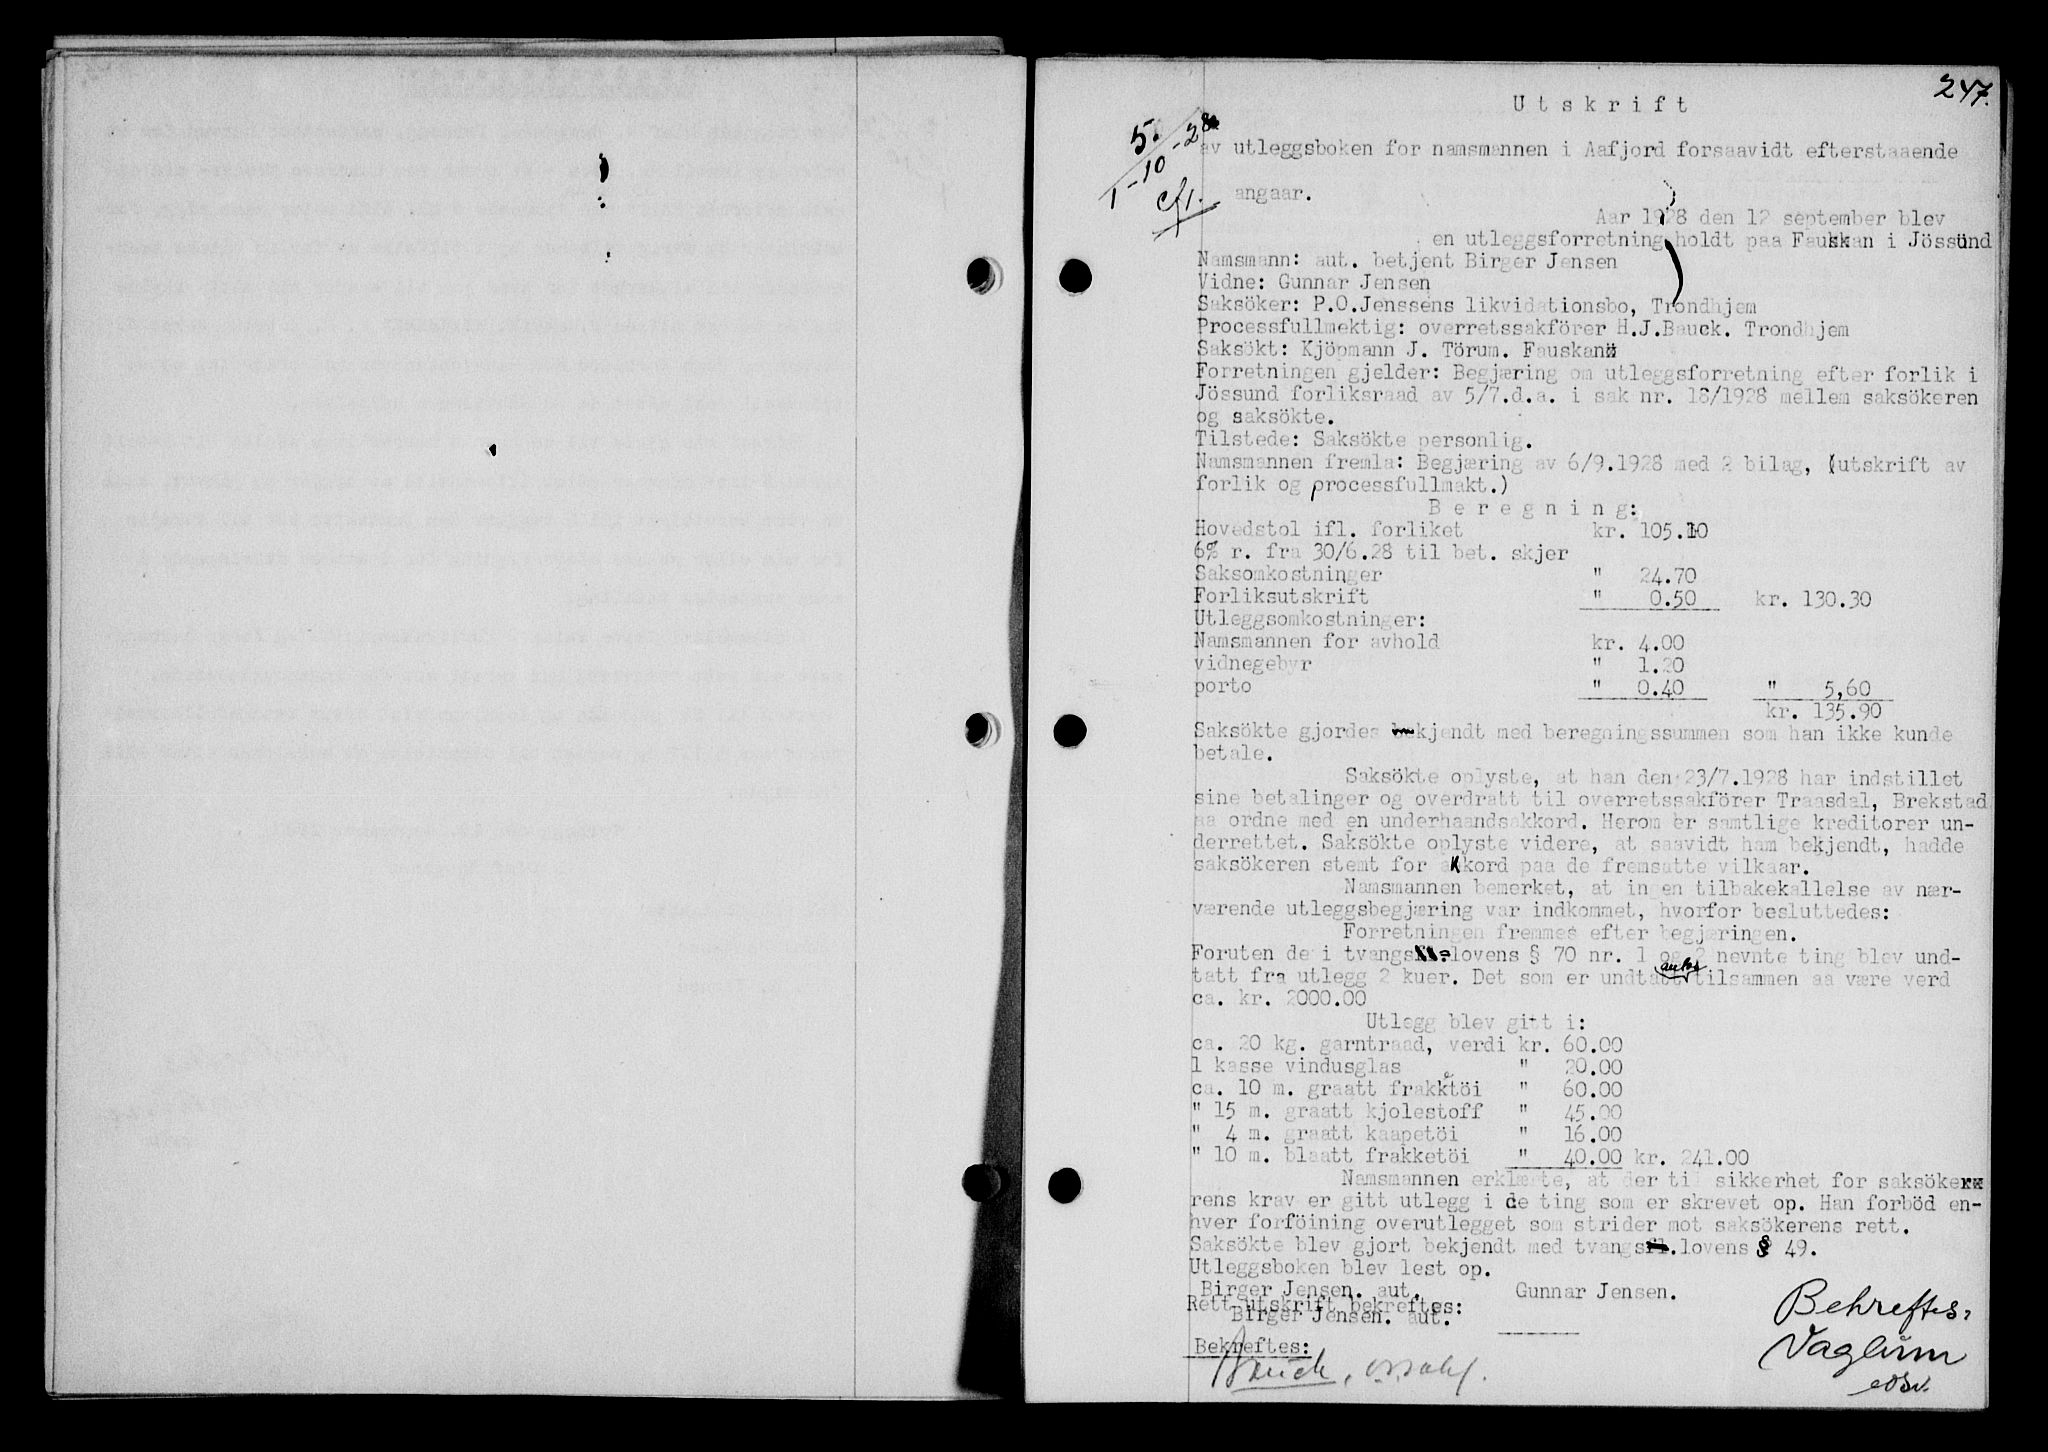 247.
U t s k r i f t
5.
/10 -28
av utleggsboken for namsmannen i Aafjord forsaavidt efterstaaende
angaar.
Aar 1928 den 12 september blev
en utleggsforretning holdt paa Fauskan i Jössund
Namsmann: aut. betjent Birger Jensen
Vidne: Gunnar Jensen
Saksöker: P.O.Jenssens likvidationsbo, Trondhjem
Processfullmektig: overretssakförer H.J.Bauck. Trondhjem
Saksökt: Kjöpmann J. Törum. Fauskan
Forretningen gjelder: Begjæring om utleggsforretning efter forlik i
Jössund forliksraad av 5/7.d.a. i sak nr. 18/1928 mellem saksökeren
og saksökte.
Tilstede: Saksökte personlig.
Namsmannen fremla: Begjæring av 6/9.1928 med 2 bilag, (utskrift av
forlik og processfullmakt.)
B e r e g n i n g:
Hovedstol ifl. forliket kr. 105.10
6% r. fra 30/6.28 til bet. skjer
Saksomkostninger " 24.70
Forliksutskrift " 0.50 kr. 130.30
Utleggsomkostninger:
Namsmannen for avhold kr. 4.00
vidnegebyr " 1.20
porto " 0.40 " 5,60
kr. 135.90
Saksökte gjordes bekjendt med beregningssummen som han ikke kunde
betale.
Saksökte oplyste, at han den 23/7.1928 har indstillet
sine betalinger og overdratt til overretssakförer Traasdal, Brekstad
aa ordne med en underhaandsakkord. Herom er samtlige kreditorer un-
derrettet. Saksökte oplyste videre, at saavidt ham bekjendt, hadde
saksökeren stemt for akkord paa de fremsatte vilkaar.
Namsmannen bemerket, at ingen tilbakekallelse av nær-
værende utleggsbegjæring var indkommet, hvorfor besluttedes:
Forretningen fremmes efter begjæringen.
Foruten de i tvangs.lovens § 70 nr. 1 og 2 nevnte ting blev und-
tatt fra utlegg 2 kuer. Det som er undtatt antas tilsammen aa være verd
ca. kr. 2000.00
Utlegg blev gitt i:
ca. 20 kg. garntraad, verdi kr. 60.00
1 kasse vindusglas " 20.00
ca. 10 m. graatt frakktöi " 60.00
" 15 m. graatt kjolestoff " 45.00
" 4 m. graatt kaapetöi " 16.00
" 10 m. blaatt frakketöi " 40.00 kr. 241.00
Namsmannen erklærte, at der til sikkerhet for saksöke
rens krav er gitt utlegg i de ting som er skrevet op. Han forböd en-
hver forföining overutlegget som strider mot saksökerens rett.
Saksökte blev gjort bekjendt med tvangsfl.lovens § 49.
Utleggsboken blev lest op.
Birger Jensen. aut. Gunnar Jensen.
Rett utskrift bekreftes:
Birger Jensen. aut.
Bekreftes:
Bauck.
Behreftes:
Vaglum